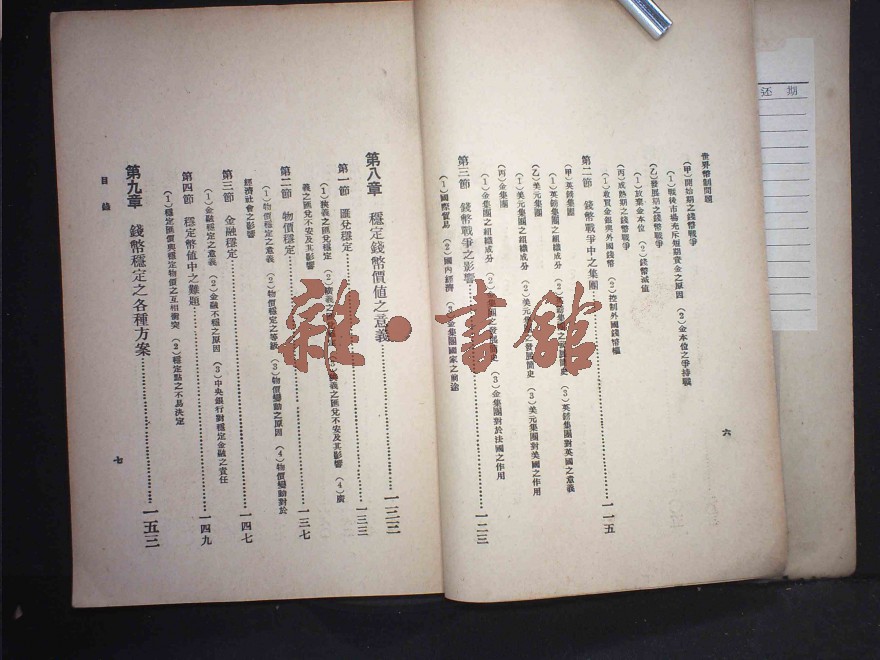 还 期
世界幣制問題
(甲)開始期之錢幣戰爭
(1)戰後市場充斥短期資金之原因 (2)金本位之爭持戰
(乙)發展期之錢幣戰爭
(1)放棄金本位 (2)錢幣減值
(丙)成熟期之錢幣戰爭
(1)收買金銀與外國錢幣 (2)控制外國錢幣權
第二節 錢幣戰爭中之集團 一一五
(甲)英鎊集團
(1)英鎊集團之組織成分 (2)英鎊集團之發展簡史 (3)英鎊集團對英國之意義
(乙)美元集團
(1)美元集團之組織成分 (2)美元集團之發展簡史 (3)美元集團對美國之作用
(丙)金集團
(1)金集團之組織成分 (2)金集團之發展簡史 (3)金集團對於法國之作用
第三節 錢幣戰爭之影響 一二三
(1)國際貿易 (2)國內經濟 金集團國家之前途
六
第八章 穩定錢幣價值之意義 一三三
第一節 匯兌穩定 一三三
(1)狹義之匯兌穩定 (2)廣義之匯兌穩定 狹義之匯兌不安及其影響 (4)廣
義之匯兌不安及其影響
第二節 物價穩定 一三七
(1)物價穩定之意義 (2)物價穩定之等級 (3)物價變動之原因 (4)物價變動對於
經濟社會之影響
第三節 金融穩定 一四七
(1)金融穩定之意義 (2)金融不穩之原因 (3)中央銀行對穩定金融之責任
第四節 穩定幣值中之難題 一四九
(1)穩定匯價與穩定物價之互相衝突 (2)穩定點之不易決定
第九章 錢幣穩定之各種方案 一五三
目錄
七
雜·書館